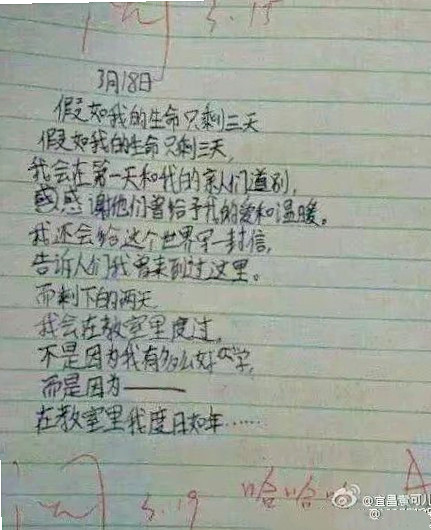 3.15
3月18日
假如我的生命只剩三天
假如我的生命只剩三天,
我会在第一天和我的亲人们道别,
感谢他们曾给予我的爱和温暖。
我还会给这个世界写一封信,
告诉人们我曾来到过这里。
而剩下的两天
我会在教室里度过,
不是因为我有多么好学,
而是因为———
在教室里我度日如年……
阅 3.19 哈哈哈 A
@宜昌富可儿